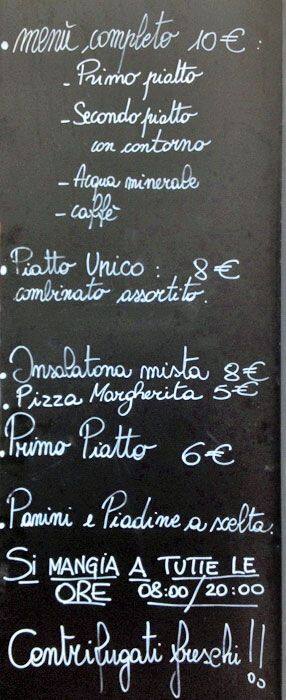 • menù completo 10€:
- Primo piatto
- Secondo piatto
con contorno
- Acqua minerale
- caffè
• Piatto Unico: 8€
combinato assortito.
• Insalatona mista 8€
• Pizza Margherita 5€
• Primo Piatto 6€
• Panini e Piadine a scelta.
SI MANGIA A TUTTE LE
ORE 08:00/20:00
Centrifugati freschi!!